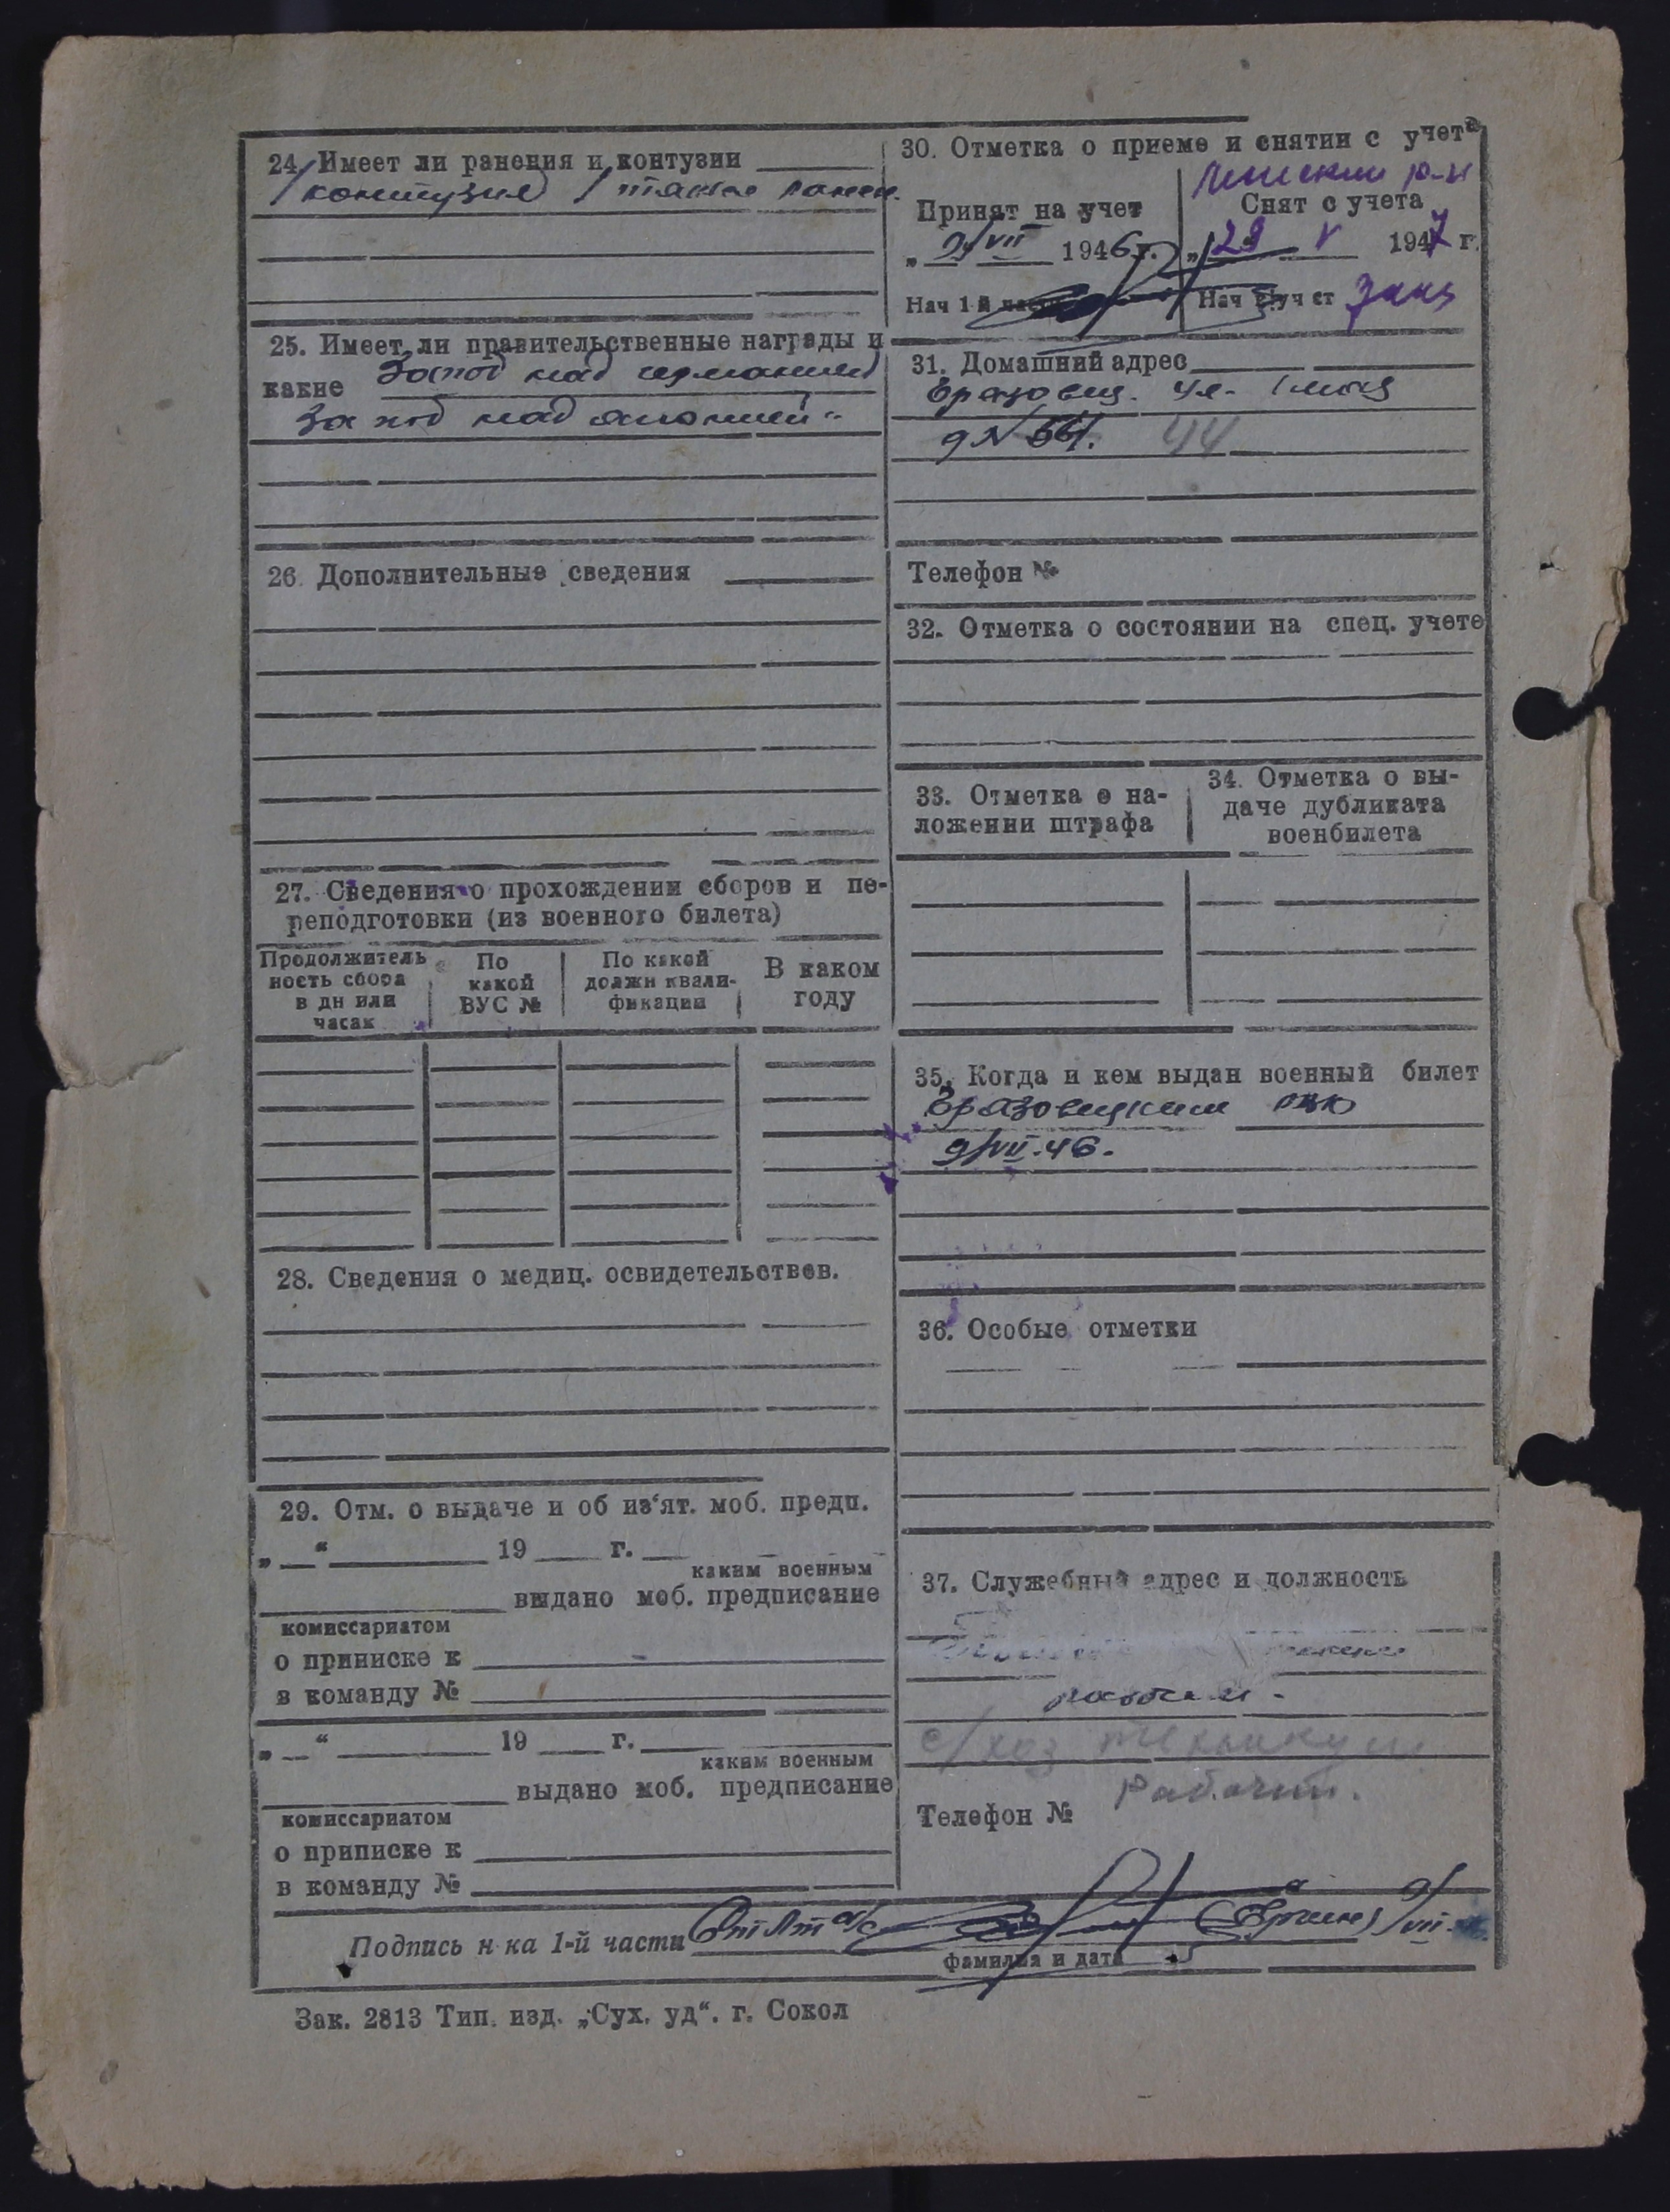 24. Имеет ли ранения и контузии
1 контузия 1
25. Имеет ли правительственные награды и
какие За поб над германией
За поб над японией"
26. Дополнительные сведения
27. Сведения о прохождении сборов и пе-
реподготовки (из военного билета)
Продолжитель
ность сбора
в дн или
часах
По
какой
ВУС №
По какой
должн квали-
фикации
В каком
году
28. Сведения о медиц. освидетельствов.
29. Отм. о выдаче и об из‘ят. моб. предп.
„ “ 19 г.
каким военным
выдано моб. предписание
комиссариатом
о приписке к
в команду №
„ “ 19 г.
каким военным
выдано моб. предписание
комиссариатом
о приписке к
в команду №
30. Отметка о приеме и снятии с учета
р-н
Принят на учет
„ 9/VII 1946 г.
Нач 1 й части
Снят с учета
„ 29 V 1947 г.
Нач уч ст
31. Домашний адрес
ул. 1 мая
д № 44
Телефон №
32. Отметка о состоянии на спец. учете
33. Отметка о на-
ложении штрафа
34. Отметка о вы-
даче дубликата
военбилета
35. Когда и кем выдан военный билет
РВК
9/VII-46.
36. Особые отметки
37. Служебный адрес и должность
с/хоз техникум
Рабочий.
Телефон №
Подпись н-ка 1-й части
фамилия и дата
Зак. 2813 Тип. изд. „Сух. уд“. г. Сокол